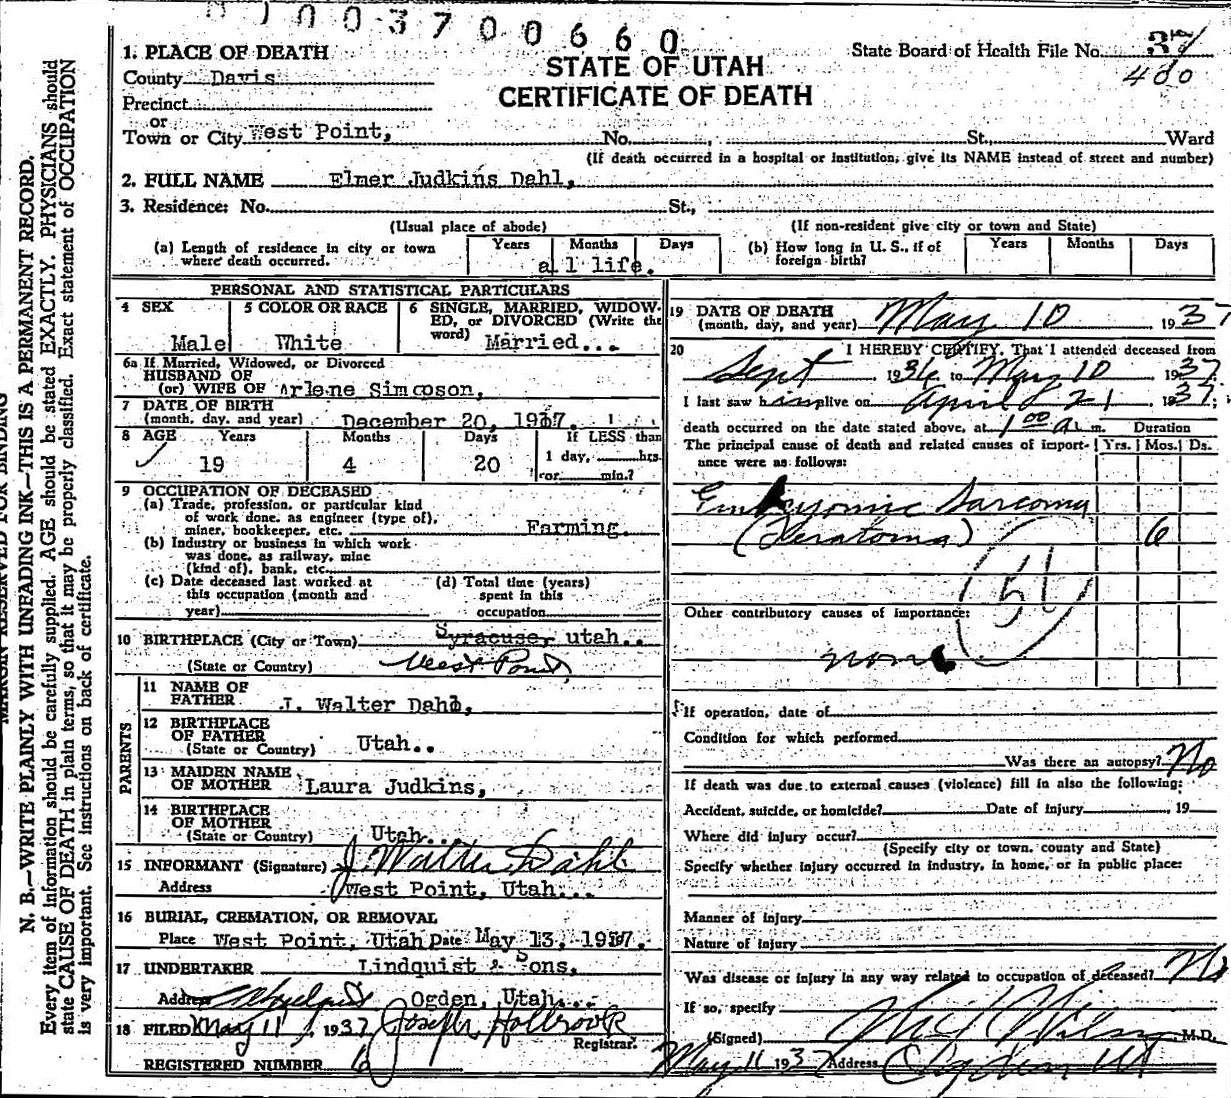 01003700660
1. PLACE OF DEATH
County Davis
Precinct
or
Town or City West Point,
STATE OF UTAH
CERTIFICATE OF DEATH
State Board of Health File No. 37
400
No. St., Ward
(If death occurred in a hospital or institution, give its NAME instead of street and number)
2. FULL NAME Elmer Judkins Dahl,
3. Residence: No. St.,
(Usual place of abode) (If non-resident give city or town and State)
(a) Length of residence in city or town where death occurred. Years Months Days all life.
(b) How long in U. S., if of foreign birth? Years Months Days
PERSONAL AND STATISTICAL PARTICULARS
4 SEX Male
5 COLOR OR RACE White
6 SINGLE, MARRIED, WIDOWED, or DIVORCED (Write the word) Married...
6a If Married, Widowed, or Divorced
HUSBAND OF
(or) WIFE OF Arlene Simpson,
7 DATE OF BIRTH
(month, day, and year) December 20, 1917.
8 AGE Years Months Days If LESS than
19 4 20 1 day, hrs.
or min.?
9 OCCUPATION OF DECEASED
(a) Trade, profession, or particular kind
of work done, as engineer (type of),
miner, bookkeeper, etc. Farming.
(b) Industry or business in which work
was done, as railway, mine
(kind of), bank, etc.
(c) Date deceased last worked at
this occupation (month and
year)
(d) Total time (years)
spent in this
occupation
10 BIRTHPLACE (City or Town) Syracuse, utah..
(State or Country) West Point,
PARENTS
11 NAME OF
FATHER J. Walter Dahl,
12 BIRTHPLACE
OF FATHER
(State or Country) Utah..
13 MAIDEN NAME
OF MOTHER Laura Judkins,
14 BIRTHPLACE
OF MOTHER
(State or Country) Utah...
15 INFORMANT (Signature) J Walter Dahl
Address West Point, Utah...
16 BURIAL, CREMATION, OR REMOVAL
Place West Point, Utah Date May 13, 1937.
17 UNDERTAKER Lindquist & Sons,
Address Ogden, Utah...
18 FILED May 11, 1937 Joseph Holbrook
Registrar.
REGISTERED NUMBER 6
19 DATE OF DEATH
(month, day, and year) May 10 1937
20 I HEREBY CERTIFY, That I attended deceased from
Sept, 1936, to May 10 1937
I last saw him alive on April 21 1937;
death occurred on the date stated above, at 1 00 a. m. Duration
The principal cause of death and related causes of importance were as follows: Yrs. Mos. Ds.
Embryonic Sarcoma
(Teratoma) 6
51
Other contributory causes of importance:
none
If operation, date of
Condition for which performed
Was there an autopsy? No
If death was due to external causes (violence) fill in also the following:
Accident, suicide, or homicide? Date of injury 19
Where did injury occur?
(Specify city or town, county and State)
Specify whether injury occurred in industry, in home, or in public place:
Manner of injury
Nature of injury
Was disease or injury in any way related to occupation of deceased? No
If so, specify
(Signed) Wilson, M.D.
May 11 1937 Address Ogden Ut
MARGIN RESERVED FOR BINDING
N. B.—WRITE PLAINLY WITH UNFADING INK—THIS IS A PERMANENT RECORD.
Every item of information should be carefully supplied. AGE should be stated EXACTLY. PHYSICIANS should
state CAUSE OF DEATH in plain terms, so that it may be properly classified. Exact statement of OCCUPATION
is very important. See instructions on back of certificate.